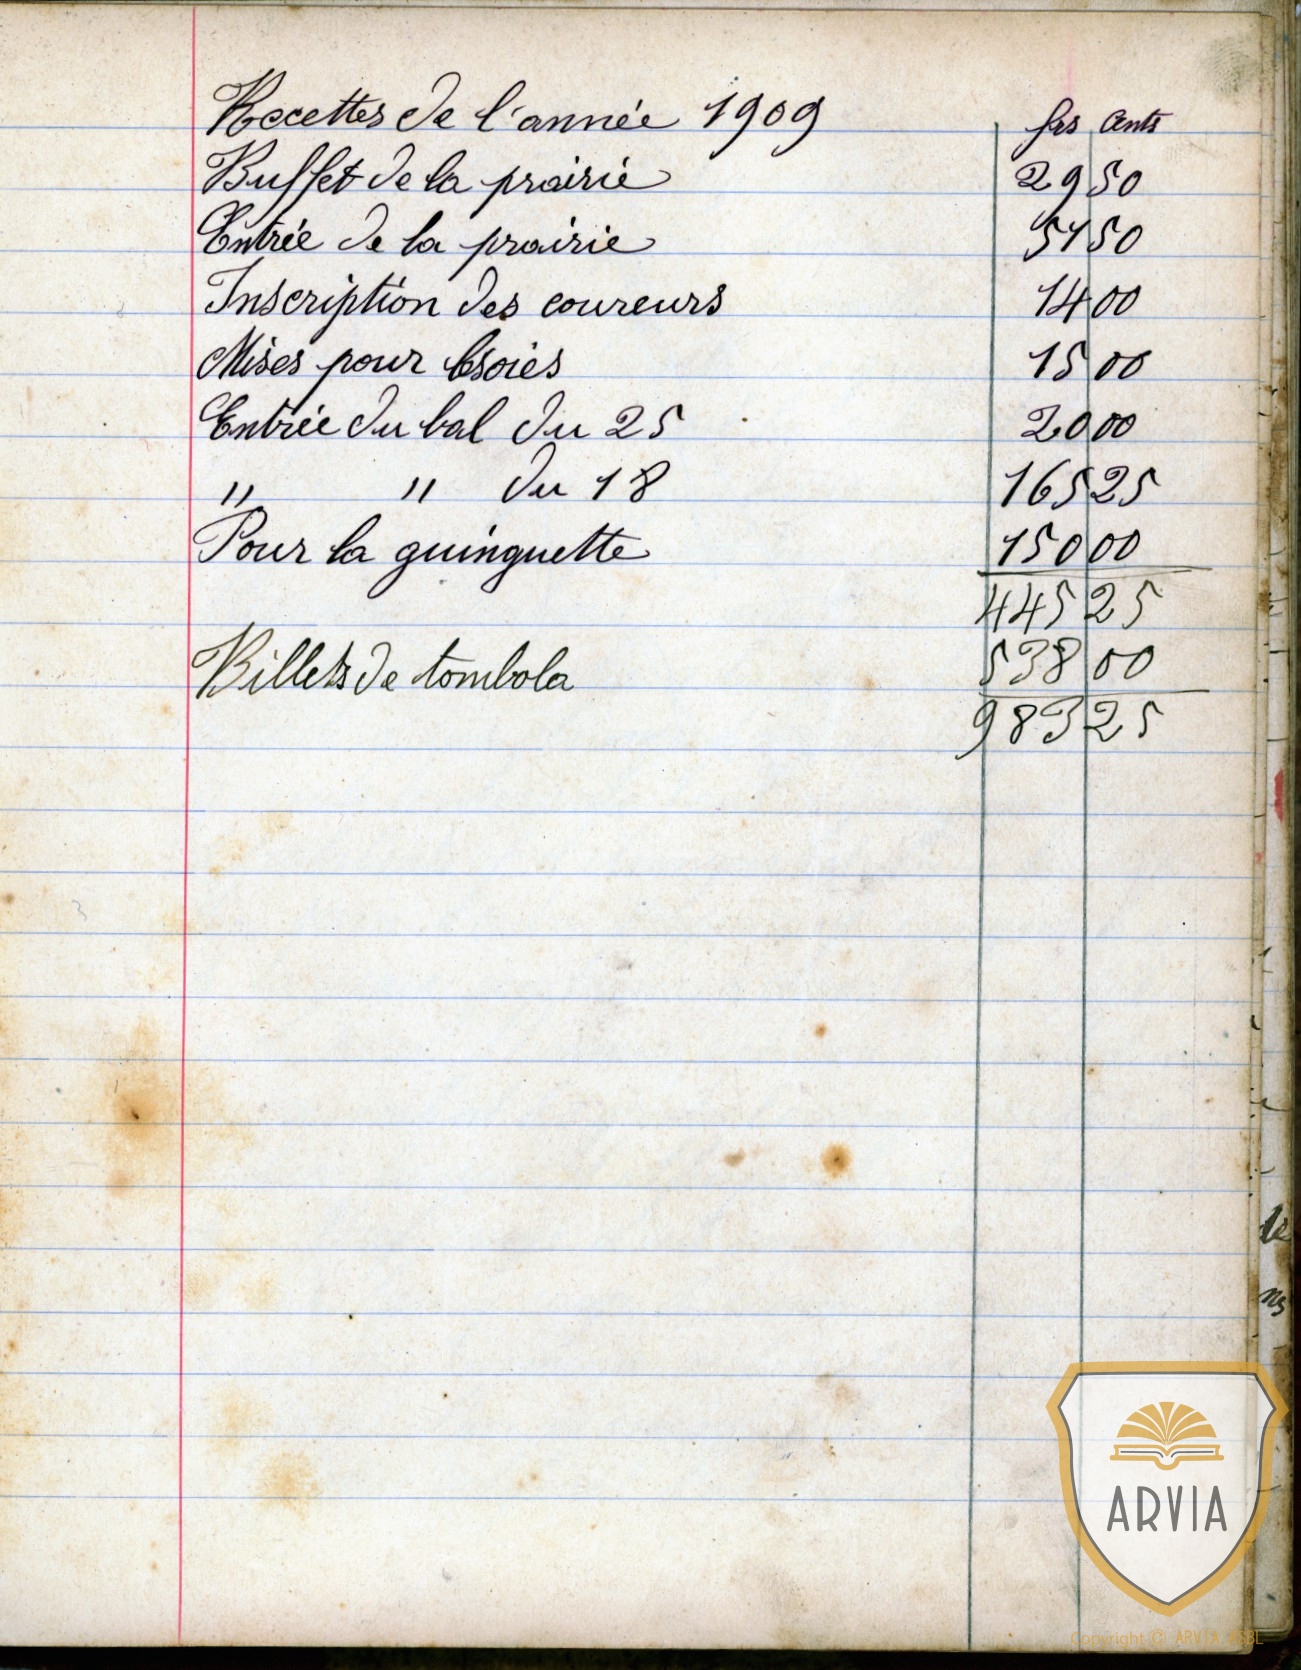 Recettes de l'année 1909 frs cents
Buffet de la prairie 29 50
Entrée de la prairie 51 50
Inscription des coureurs 14 00
Mises pour 15 00
Entrée du bal du 25 20 00
" " du 18 165 25
Pour la guinguette 150 00
445 25
Billets de tombola 538 00
983 25
ARVIA
Copyright © ARVIA ASBL